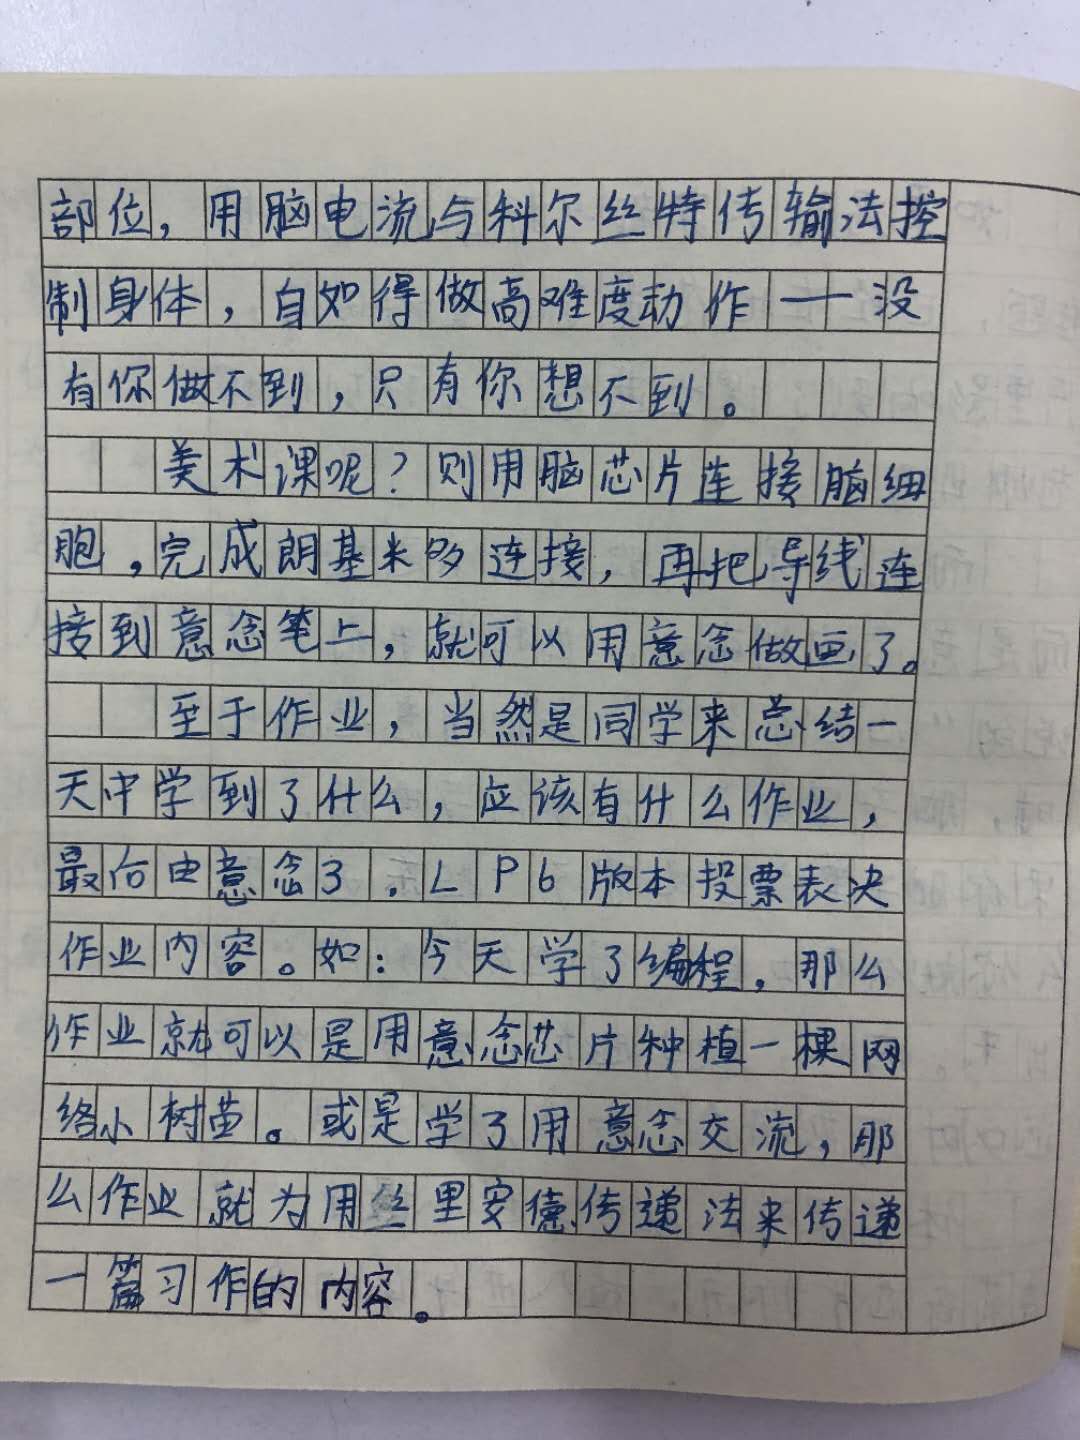 部位，用脑电流与科尔丝特传输法控
制身体，自如得做高难度动作——没
有你做不到，只有你想不到。
美术课呢？则用脑芯片连接脑细
胞，完成朗基米多连接，再把导线连
接到意念笔上，就可以用意念做画了。
至于作业，当然是同学来总结一
天中学到了什么，应该有什么作业，
最后由意念3.LP6版本投票表决
作业内容。如：今天学了编程，那么
作业就可以是用意念芯片种植一棵网
络小树苗。或是学了用意念交流，那
么作业就为用丝里安德传递法来传递
一篇习作的内容。